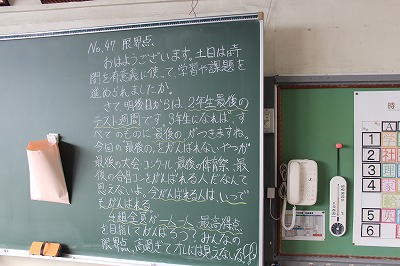 No.47 限界点
おはようございます。土日は時
間を有意義に使って、学習や課題を
進められましたか。
さて明後日からは、2年生最後の
テスト週間です。3年生になれば、す
べてのものに最後の、がつきますね。
今回の最後の、をがんばれないやつが
最後の大会・コンクール、最後の体育祭、最
後の合唱コンをがんばれる人だなんて
思えないよ。今がんばれる人は、いつで
もがんばれる。
4組全員が一人一人、最高得点
を目指してがんばろう?みんなの
限界点、高過ぎてオレには見えないな
時
A
1
2
3
4
5
6